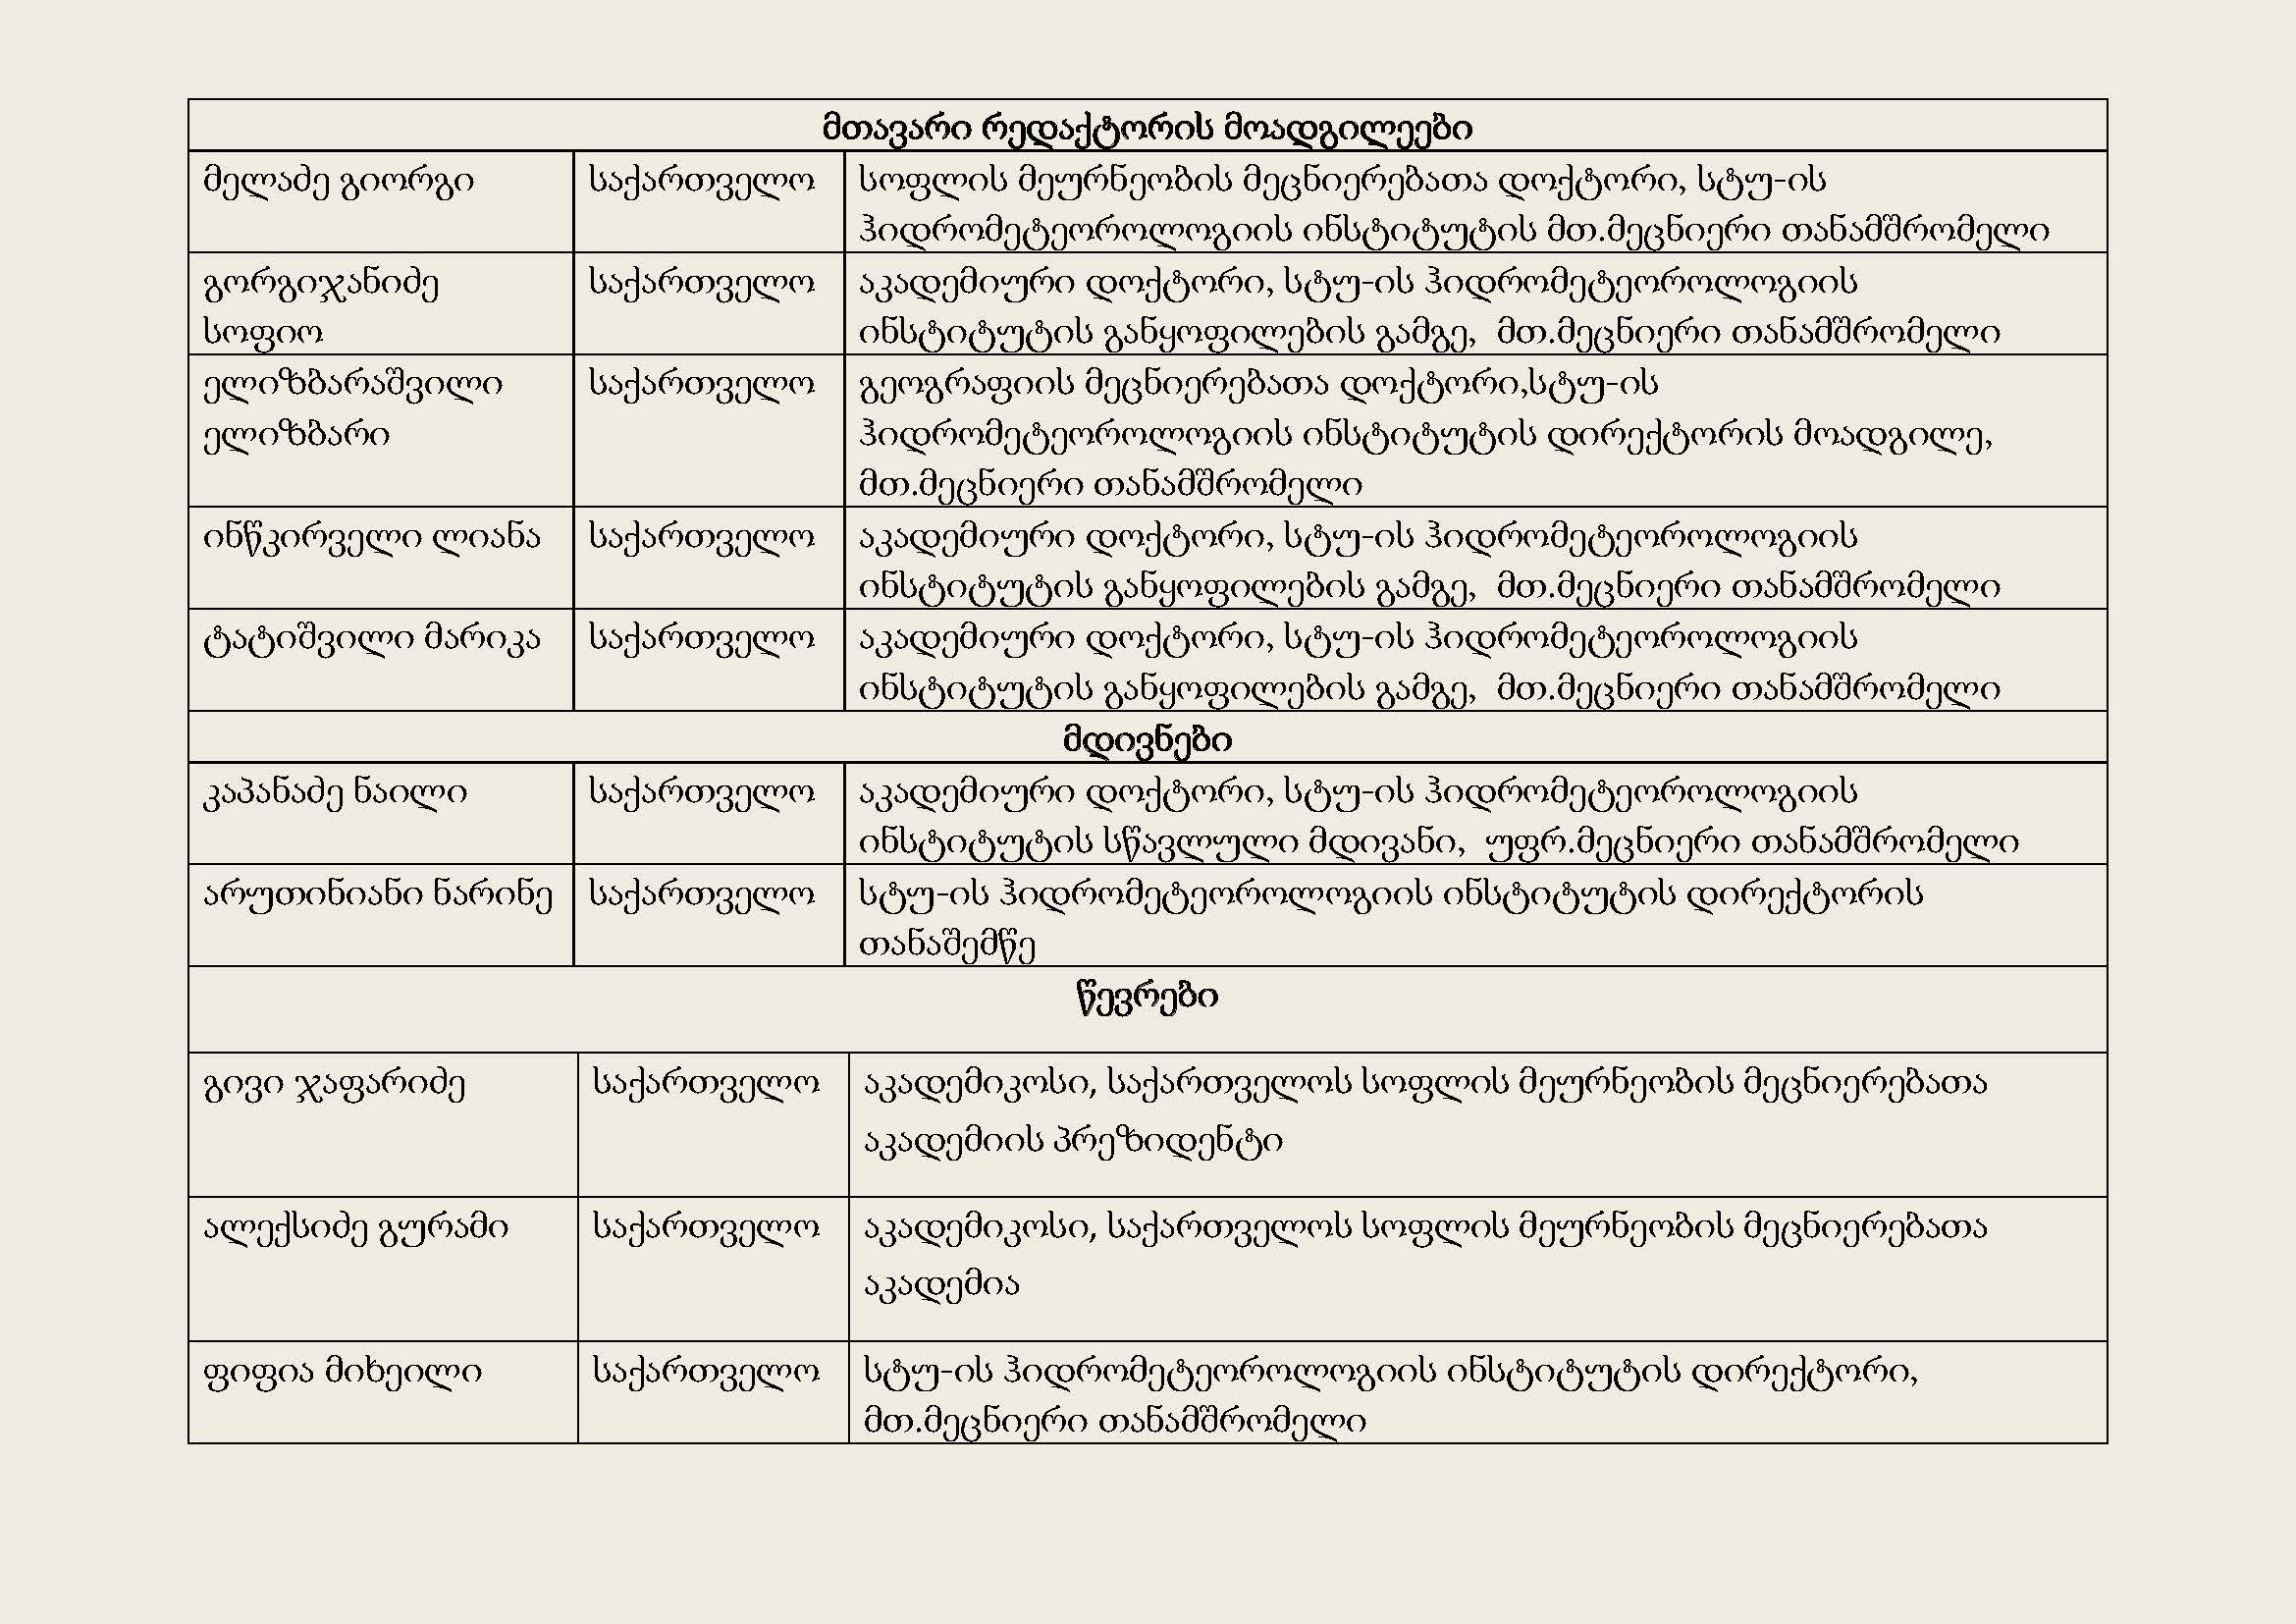 მთავარი რედაქტორის მოადგილეები
მელაძე გიორგი საქართველო სოფლის მეურნეობის მეცნიერებათა დოქტორი, სტუ-ის
ჰიდრომეტეოროლოგიის ინსტიტუტის მთ.მეცნიერი თანამშრომელი
გორგიჯანიძე საქართველო აკადემიური დოქტორი, სტუ-ის ჰიდრომეტეოროლოგიის
სოფიო ინსტიტუტის განყოფილების გამგე, მთ.მეცნიერი თანამშრომელი
ელიზბარაშვილი საქართველო გეოგრაფიის მეცნიერებათა დოქტორი,სტუ-ის
ელიზბარი ჰიდრომეტეოროლოგიის ინსტიტუტის დირექტორის მოადგილე,
მთ.მეცნიერი თანამშრომელი
ინწკირველი ლიანა საქართველო აკადემიური დოქტორი, სტუ-ის ჰიდრომეტეოროლოგიის
ინსტიტუტის განყოფილების გამგე, მთ.მეცნიერი თანამშრომელი
ტატიშვილი მარიკა საქართველო აკადემიური დოქტორი, სტუ-ის ჰიდრომეტეოროლოგიის
ინსტიტუტის განყოფილების გამგე, მთ.მეცნიერი თანამშრომელი
მდივნები
კაპანაძე ნაილი საქართველო აკადემიური დოქტორი, სტუ-ის ჰიდრომეტეოროლოგიის
ინსტიტუტის სწავლული მდივანი, უფრ.მეცნიერი თანამშრომელი
არუთინიანი ნარინე საქართველო სტუ-ის ჰიდრომეტეოროლოგიის ინსტიტუტის დირექტორის
თანაშემწე
წევრები
გივი ჯაფარიძე საქართველო აკადემიკოსი, საქართველოს სოფლის მეურნეობის მეცნიერებათა
აკადემიის პრეზიდენტი
ალექსიძე გურამი საქართველო აკადემიკოსი, საქართველოს სოფლის მეურნეობის მეცნიერებათა
აკადემია
ფიფია მიხეილი საქართველო სტუ-ის ჰიდრომეტეოროლოგიის ინსტიტუტის დირექტორი,
მთ.მეცნიერი თანამშრომელი